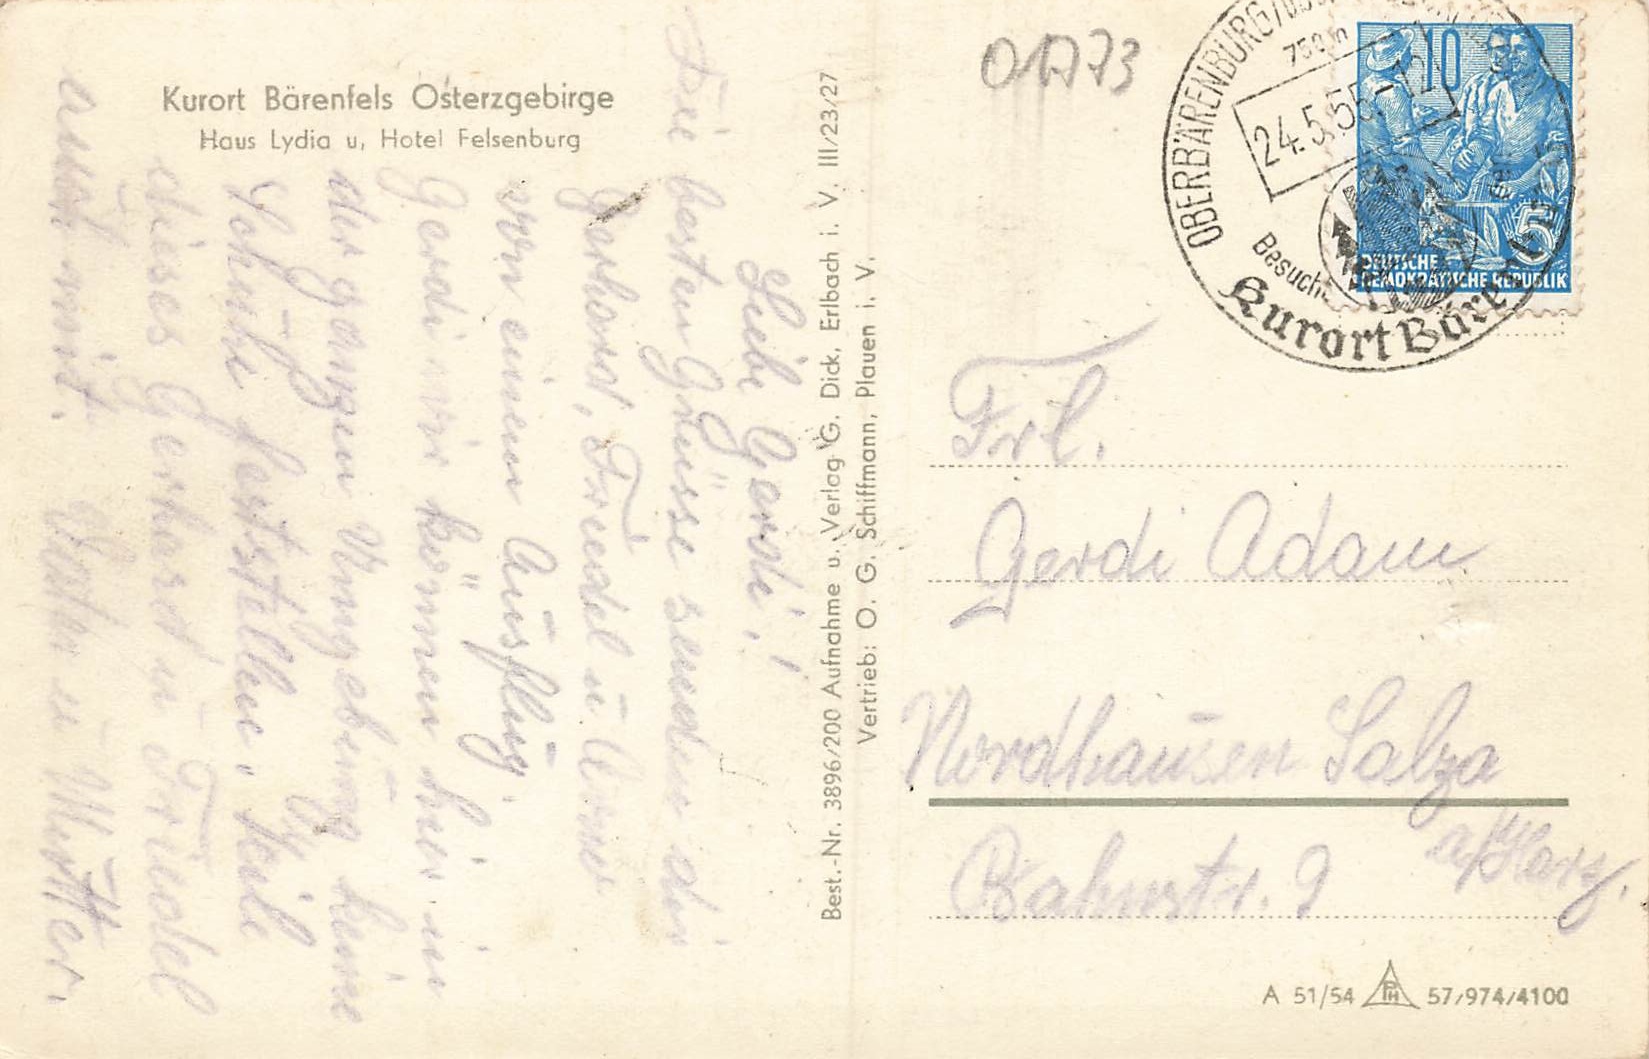 Kurort Bärenfels Osterzgebirge
Haus Lydia u, Hotel Felsenburg
Liebe Gerdi!
Die besten Grüsse senden dir
Gerhard, Friedel u
von einem Ausflug.
Gerdi wir können hier in
der ganzen Umgebung keine
Schuhe feststellen,
dieses Gerhard u Friedel
auch mit. Vater u Mutter.
Best.-Nr. 3896/200 Aufnahme u. Verlag G. Dick, Erlbach i. V. III/23/27
Vertrieb: O. G. Schiffmann, Plauen i. V.
01773
OBERBÄRENBURG
750 m
24.5.55.-12
Besucht
Kurort Bären
10
5
DEUTSCHE
DEMOKRATISCHE REPUBLIK
Frl.
Gerdi Adam
Nordhausen Salza
a/Harz.
Bahnstr. 9
A 51/54 PH 57/974/4100